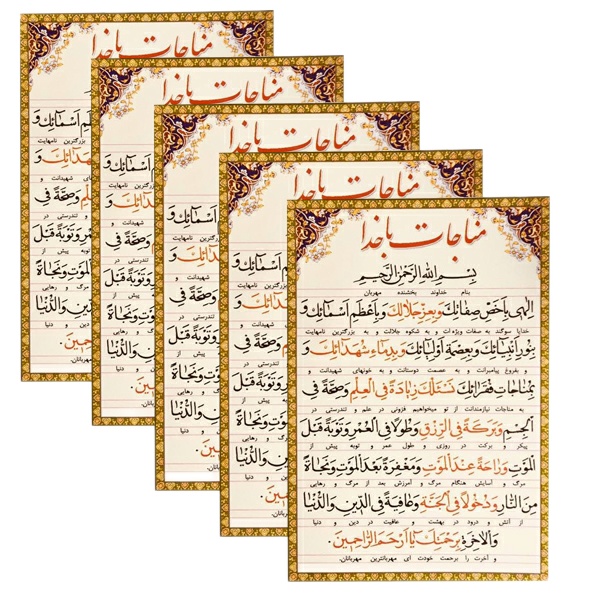 مناجات باخدا
بِسْمِ اللهِ الرَّحْمٰنِ الرَّحیمِ
بنام خداوند بخشنده مهربان
اِلٰهی بِاَخَصِّ صِفاتِكَ وَبِعِزِّ جَلالِكَ وَبِاَعْظَمِ اَسْمآئِكَ وَ
خدایا سوگند به صفات ویژه ات و به شکوه جلالت و به بزرگترین نامهایت
بِنُورِ اَنْبِیآئِكَ وَبِعِصْمَةِ اَوْلِیآئِكَ وَبِدِمآءِ شُهَدآئِكَ وَ
و بفروغ پیامبرانت و به عصمت دوستانت و به خونهای شهیدانت و
بِمُناجاتِ فُقَرآئِكَ نَسْئَلُكَ زِیادَةً فِی الْعِلْمِ وَصِحَّةً فِی
به مناجات نیازمندانت از تو میخواهیم فزونی در علم و تندرستی در
الْجِسْمِ وَبَرَكَةً فِی الرِّزْقِ وَطُولاً فِی الْعُمْرِ وَتَوْبَةً قَبْلَ
پیکر و برکت در روزی و طول عمر و توبه پیش از
الْمَوْتِ وَراحَةً عِنْدَ الْمَوْتِ وَمَغْفِرَةً بَعْدَ الْمَوْتِ وَنَجاةً
مرگ و آسایش هنگام مرگ و آمرزش بعد از مرگ و رهایی
مِنَ النّارِ وَدُخُولاً فِی الْجَنَّةِ وَعافِیَةً فِی الدّینِ وَالدُّنْیا
از آتش و درود در بهشت و عافیت در دین و دنیا
وَالْاٰخِرَةِ بِرَحْمَتِكَ یا اَرْحَمَ الرّاحِمینَ.
و آخرت را برحمت خودت ای مهربانترین مهربانان.